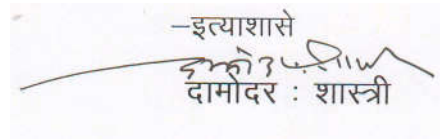 –इत्याशासे
दामोदर : शास्त्री